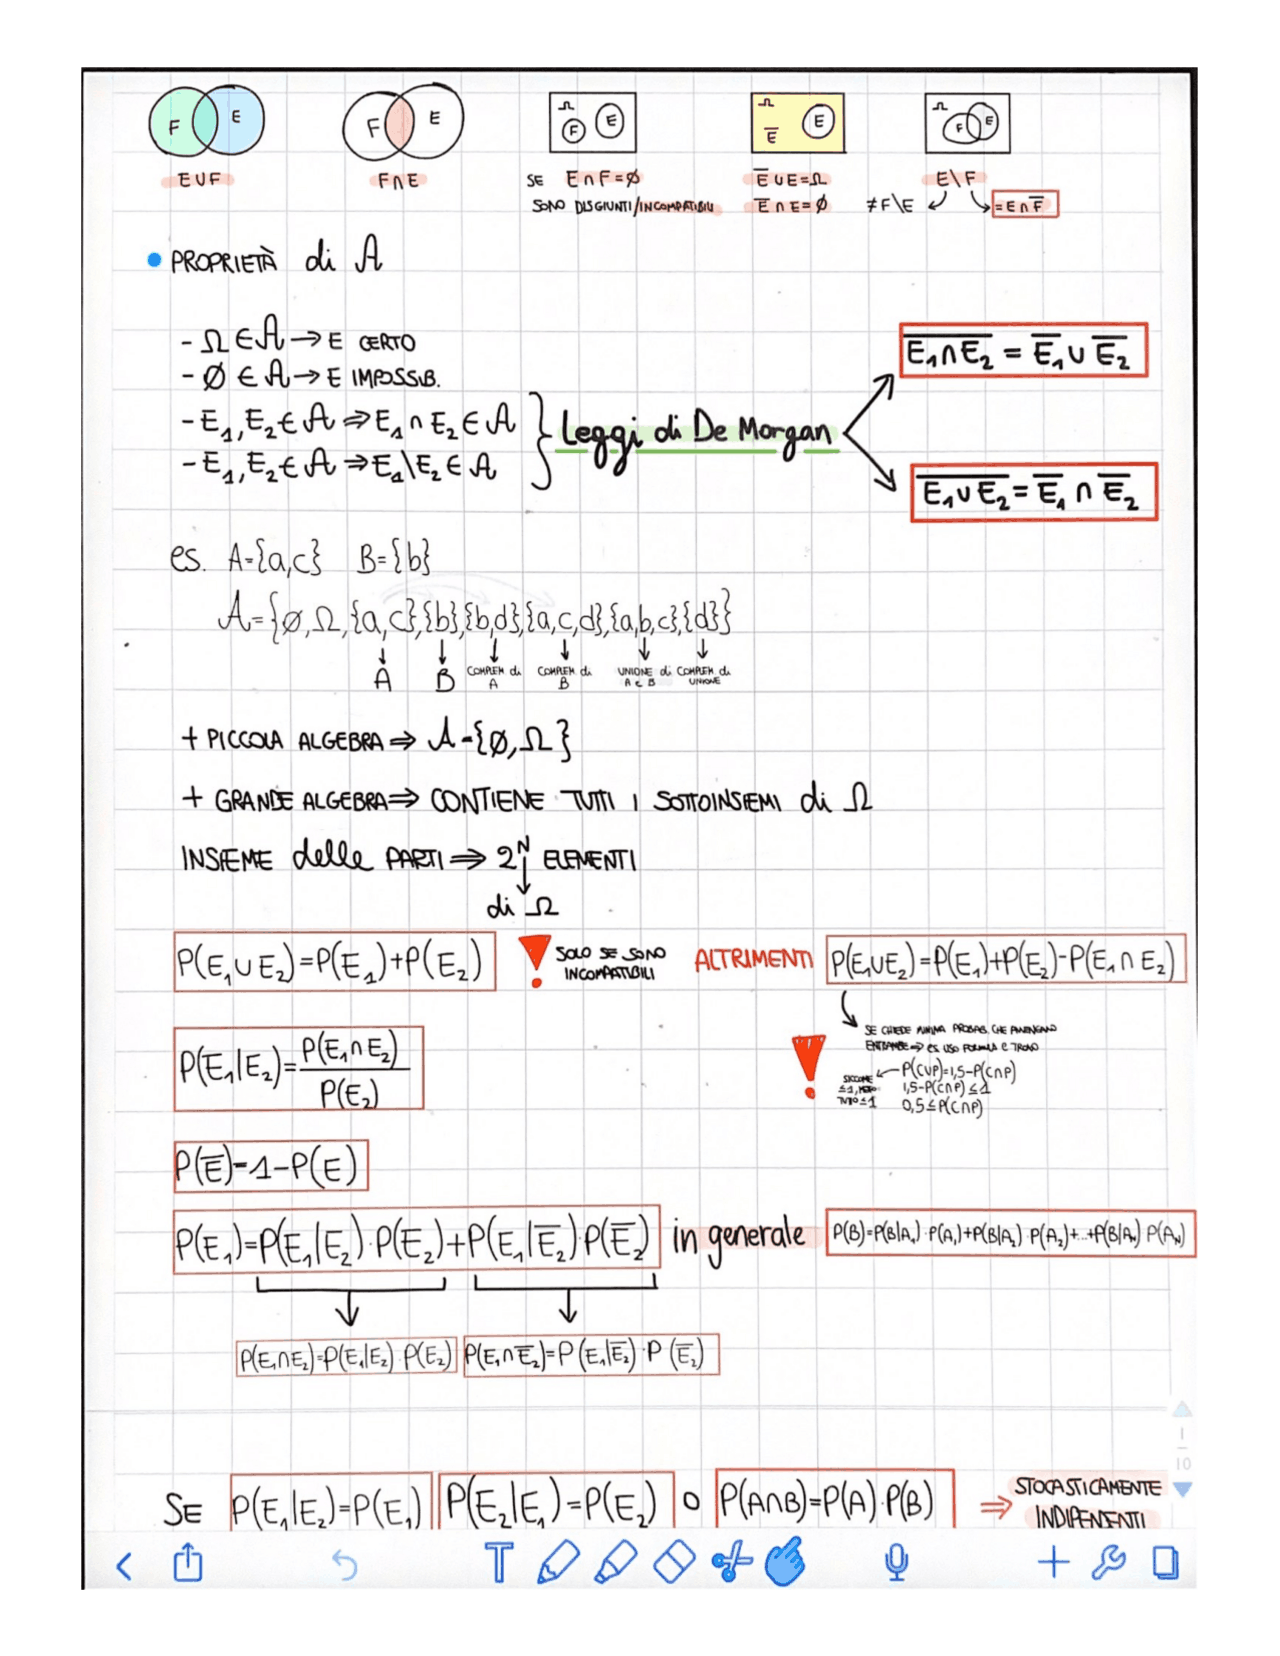 F E
F E
Ω F E
Ω E̅ E
Ω F E
E∪F
F∩E
SE E∩F=∅
SONO DISGIUNTI/INCOMPATIBILI
E̅∪E=Ω
E̅∩E=∅
E\F
≠F\E
=E∩F̅
• PROPRIETÀ di A
- Ω∈A→E CERTO
- ∅∈A→E IMPOSSIB.
- E₁,E₂∈A⇒E₁∩E₂∈A
- E₁,E₂∈A⇒E₁\E₂∈A
Leggi di De Morgan
\overline{E₁∩E₂} = E̅₁∪E̅₂
\overline{E₁∪E₂} = E̅₁∩E̅₂
es. A={a,c} B={b}
A={∅,Ω,{a,c},{b},{b,d},{a,c,d},{a,b,c},{d}}
A
B
COMPLEM di A
COMPLEM di B
UNIONE di A e B
COMPLEM di UNIONE
+ PICCOLA ALGEBRA⇒ A={∅,Ω}
+ GRANDE ALGEBRA⇒ CONTIENE TUTTI I SOTTOINSIEMI di Ω
INSIEME delle PARTI⇒ 2ᴺ ELEMENTI
di Ω
P(E₁∪E₂)=P(E₁)+P(E₂)
! SOLO SE SONO
INCOMPATIBILI
ALTRIMENTI P(E₁∪E₂)=P(E₁)+P(E₂)-P(E₁∩E₂)
SE CHIEDE MINIMA PROBAB. CHE AVVENGANO
ENTRAMBE⇒ es. USO FORMULA e TROVO
P(C∪P)=1,5-P(C∩P)
1,5-P(C∩P)≤1
0,5≤P(C∩P)
! SICCOME
≤1,
TUTTO≤1
P(E₁|E₂)=P(E₁∩E₂)/P(E₂)
P(E̅)=1-P(E)
P(E₁)=P(E₁|E₂)·P(E₂)+P(E₁|E̅₂)·P(E̅₂) in generale P(B)=P(B|A₁)·P(A₁)+P(B|A₂)·P(A₂)+...+P(B|Aₙ)P(Aₙ)
P(E₁∩E₂)=P(E₁|E₂)·P(E₂) P(E₁∩E̅₂)=P(E₁|E̅₂)·P(E̅₂)
1
10
SE P(E₁|E₂)=P(E₁) P(E₂|E₁)=P(E₂) O P(A∩B)=P(A)·P(B) ⇒ STOCASTICAMENTE
INDIPENDENTI
T